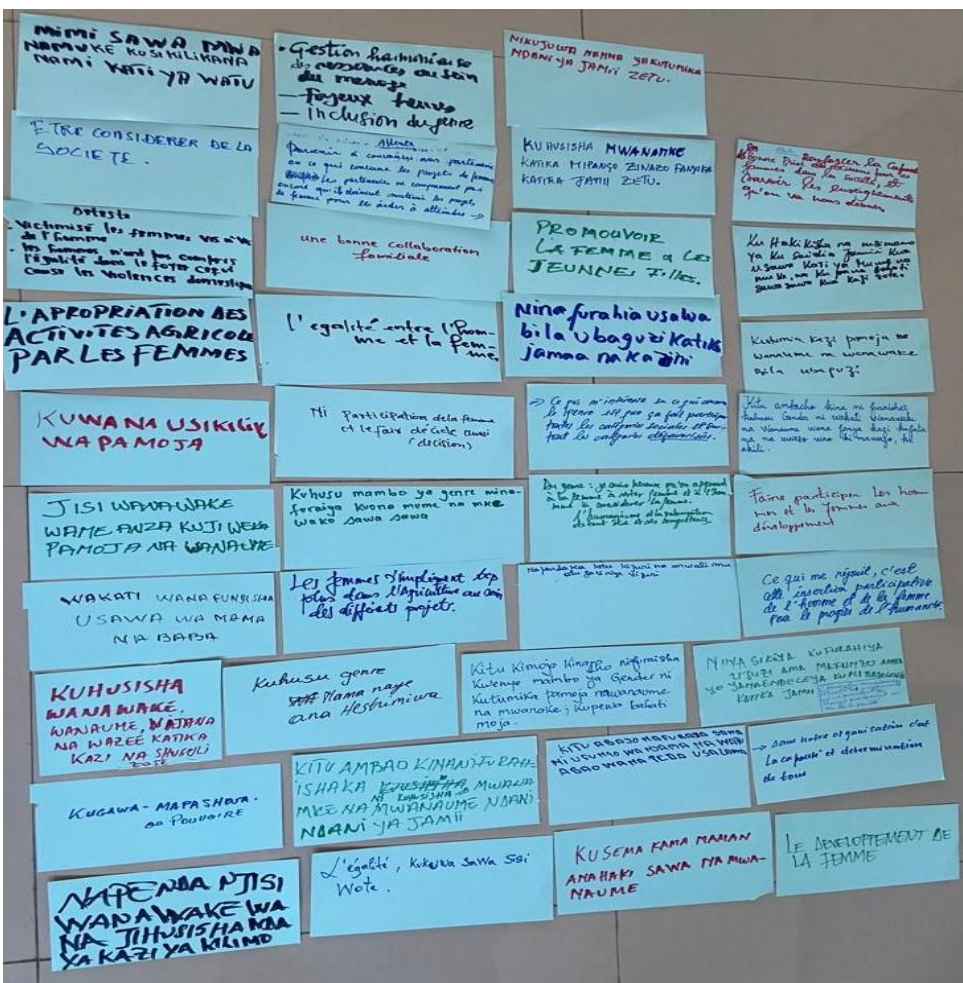 MIMI SAWA MWA
NAMUKE KUSIKILIKANA
NAMI KATI YA WATU
ETRE CONSIDERER DE LA
SOCIETE.
Deteste
- Victimisé les femmes vis à vis
de l'homme
- les femmes n'ont pas compris
l'égalité dans le foyer ce qui
cause les violences domestique
L'APROPRIATION DES
ACTIVITES AGRICOLE
PAR LES FEMMES
KUWA NA USIKILIZI
WA PAMOJA
JISI WANAWAKE
WAME ANZA KUJI WEKA
PAMOJA NA WANAUME
WAKATI WANA FUNDISHA
USAWA WA MAMA
NA BABA
KUHUSISHA
WANAWAKE,
WANAUME, VIJANA
NA WAZEE KATIKA
KAZI NA SHUGULI
ZOTE
KUGAWA - MAPASHWA.
au Pouvoire
NAPENDA NJISI
WANAWAKE WA
NA JIHUSISHA
YA KAZI YA KILIMO
• Gestion
des ressources au sein
du menage
— Foyeux heureux
— Inclusion du genre
Attente
Parvenir à convaincre nos partenaires
en ce qui concerne les projets de femme
les partenaires ne comprennent pas
encore qu'ils doivent soutenir les projets
de femme pour les aider à atteindre →
une bonne collaboration
familiale
l'egalité entre l'hom-
me et la fem-
me.
Participation de la femme
et le fair décide aussi
(decision)
Kuhusu mambo ya genre mina-
furaiya kuona mume na mke
wako sawa sawa
Les femmes s'impliquent trop
plus dans l'Agriculture au sein
des différents projets.
Kuhusu genre
Mama naye
ana Heshimiwa
KITU AMBAO KINANIFURAH-
ISHAKA NI KUHUSISHA MWANA
MKE NA MWANAUME NDANI
NDANI YA JAMII
L'égalité, kukuwa sawa sisi
Wote.
NIKUJUWA NAMNA YAKUTUMIKA
NDANI YA JAMII ZETU.
KUHUSISHA MWANAMKE
KATIKA MIPANGO ZINAZO FANYIKA
KATIKA JAMII ZETU.
PROMOUVOIR
LA FEMME & LES
JEUNNES FILLES.
Nina furahia usawa
bila ubaguzi katika
jamaa na kazini
→ Ce qui m'intéresse en ce qui concerne
le genre est que ça fait participer
toutes les catégories sociales et sur-
tout les catégories défavorisées.
Du genre : je suis heureux qu'on apprend
à la femme à rester femme et à l'hom-
me à considérer la femme.
Kitu Kimoja Kinacho nifuraisha
Kwenye mambo ya Gender ni
Kutumika pamoja na wanaume
na mwanake; Kupewa bahati
moja.
KITU
NI USAWA WA WAMAMA NA
KUSEMA KAMA MAMAN
ANAHAKI SAWA NA MWA-
NAUME
femmes dans la société, et
savoir les enseignements
qu'on va nous donner
Ku Hakikisha na msimamo
ya Ku saidia Jamii Kwa
usawa Kati ya Mume na
muke, na Ku pana bahati
sawa sawa Kwa Kazi zote.
Kutumia kazi pamoja na
wanaume na wanawake
bila ubaguzi
Kitu ambacho kina ni furaisha
kuhusu Genda ni wakati wanawake
na wanaume wana fanya kazi kufata
na uwezo wao ki mawazo, ki
akili.
Faire participer les hom-
mes et les femmes aux
développement
Ce qui me réjouit, c'est
cette insertion participative
de l'homme et de la femme
pour le progrès de l'humanité.
NINA SIKIYA KUFURAHIYA
UJUZI AMA MAFUNZO AMBA
YO YANAENDELEYA KUMI BADILISHA
KATIKA JAMII
→ Dans notre organisation c'est
la capacité et determination
de tous
LE DEVELOPPEMENT DE
LA FEMME